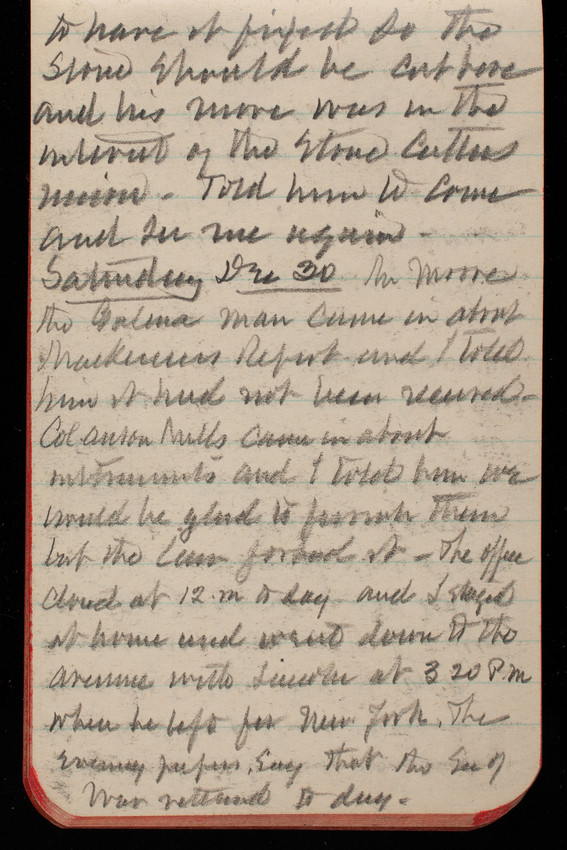 to have it fixed so the
Stone should be cut here
and his move was in the
interest of the Stone Cutters
union - Told him to come
and see me again -
Saturday Dec 30 Mr Moore
the Galena man came in about
Mackenzies Report and I told
him it had not been received -
Col Anson Mills came in about
instruments and I told him we
would be glad to furnish them
but the law forbid it - The office
closed at 12 m to day and I stayed
at home and went down to the
avenue with Lincoln at 3 20 P.m
when he left for New York. The
evening papers say that the Sec of
War returned to day -